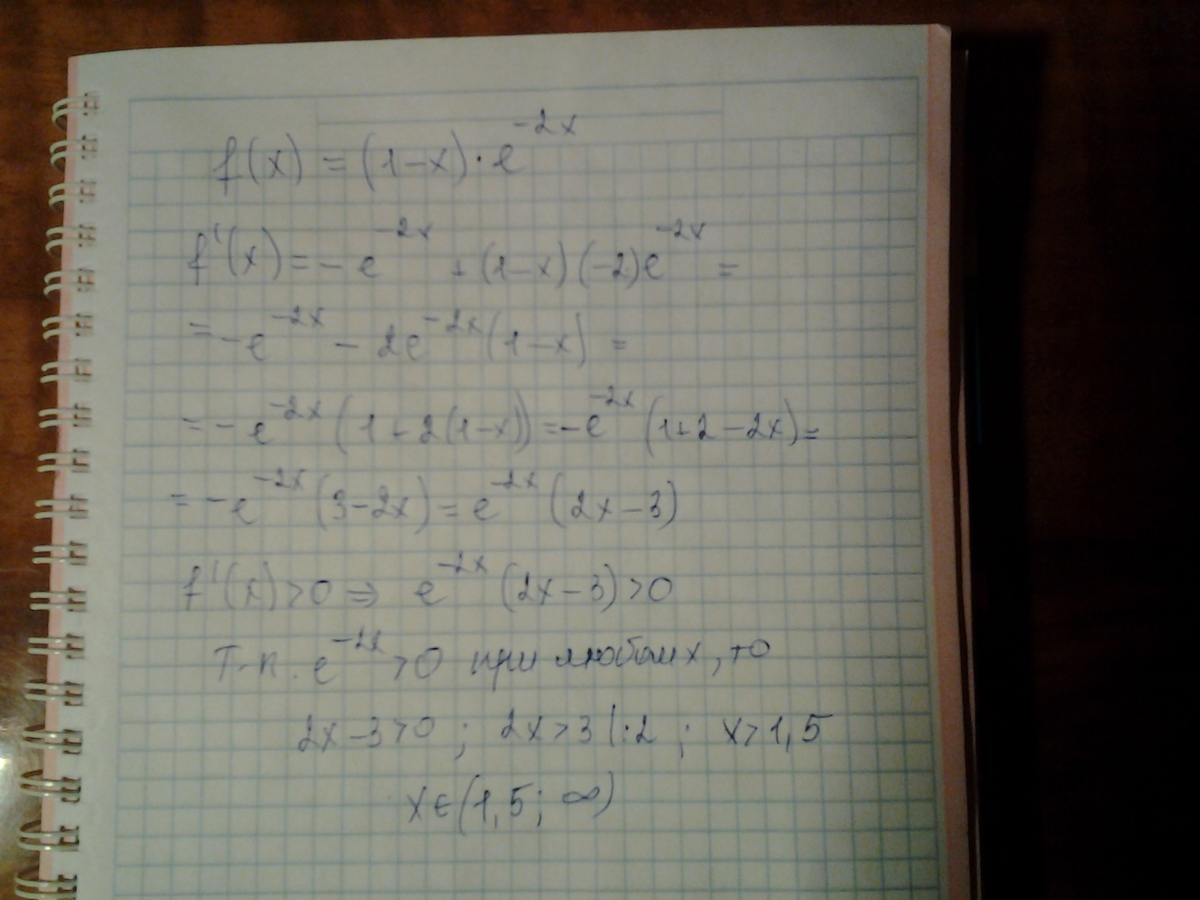 f(x) = (1-x)·e^{-2x}
f'(x) = -e^{-2x} + (1-x)(-2)e^{-2x} =
= -e^{-2x} - 2e^{-2x}(1-x) =
= -e^{-2x}(1+2(1-x)) = -e^{-2x}(1+2-2x) =
= -e^{-2x}(3-2x) = e^{-2x}(2x-3)
f'(x)>0 ⇒ e^{-2x}(2x-3)>0
Т-к. e^{-2x}>0 при любом x, то
2x-3>0; 2x>3 |:2; x>1,5
x∈(1,5; ∞)